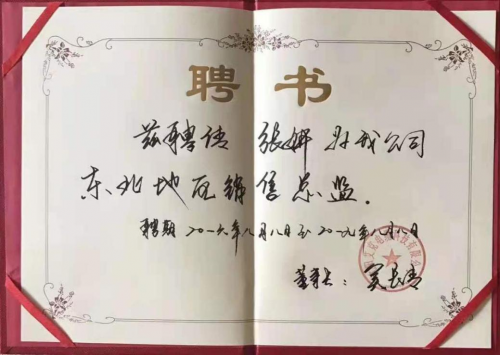 聘书
兹聘 为我公司
东北地区销售总监.
聘期 二〇一六年八月八日至二〇一九年八月八日
董事长: 吴长青